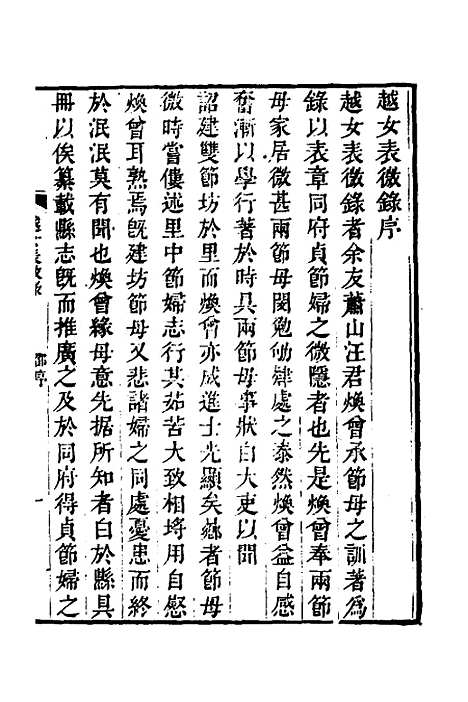 越女表微錄序
越女表微錄者余友蕭山汪君煥曾承節母之訓著爲
錄以表章同府貞節婦之微隱者也先是煥曾奉兩節
母家居微甚兩節母閔勉劬肄處之泰然煥曾益自感
奮漸以學行著於時具兩節母事狀白大吏以聞
詔建雙節坊於里而煥曾亦成進士光顯矣始者節母
微時嘗僂述里中節婦志行其茹苦大致相埒用自慰
煥曾耳熟焉旣建坊節母又悲諸婦之同處憂患而終
於泯泯莫有聞也煥曾緣母意先据所知者白於縣具
冊以俟纂載縣志旣而推廣之及於同府得貞節婦之
越女表微錄
邵序
一